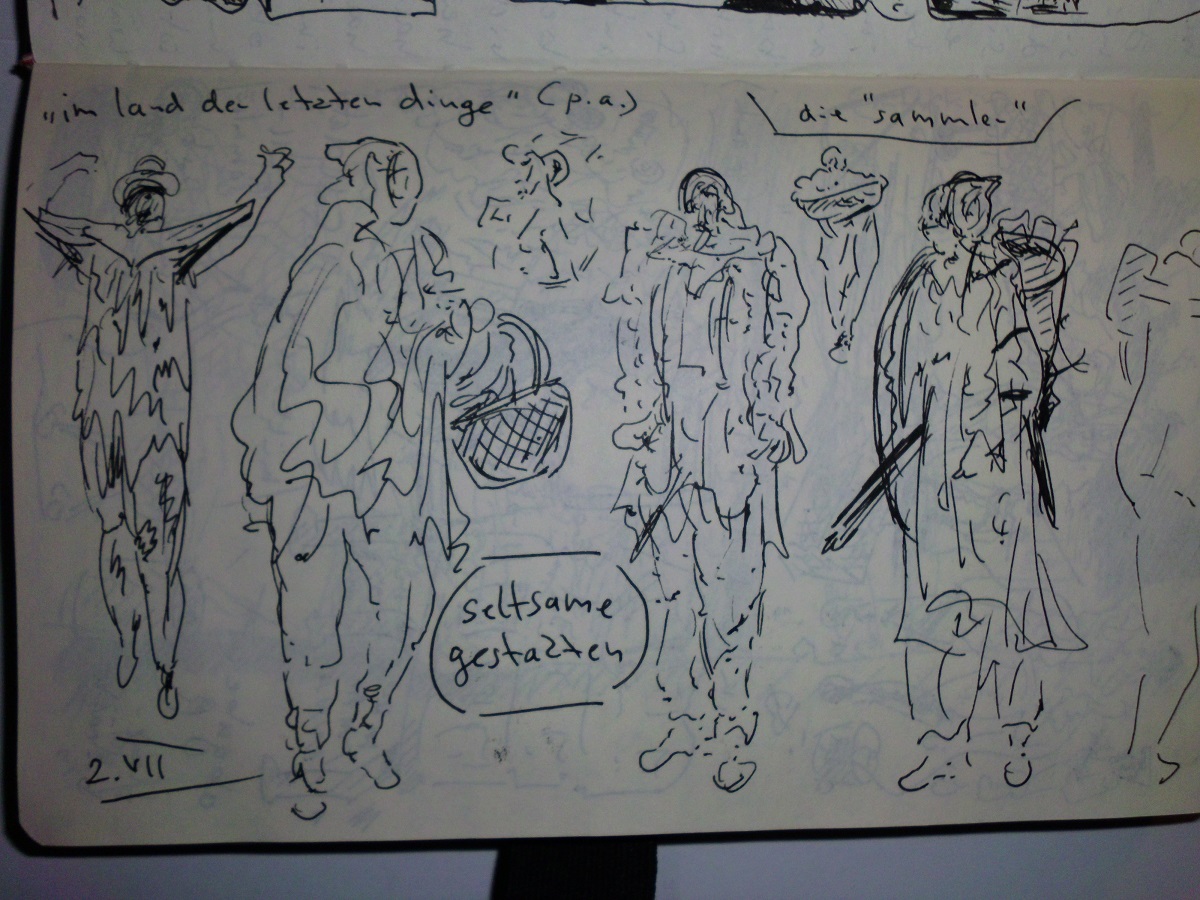 „im land der letzten dinge" (p.a.)
die "sammler"
seltsame
gestalten
2.VII